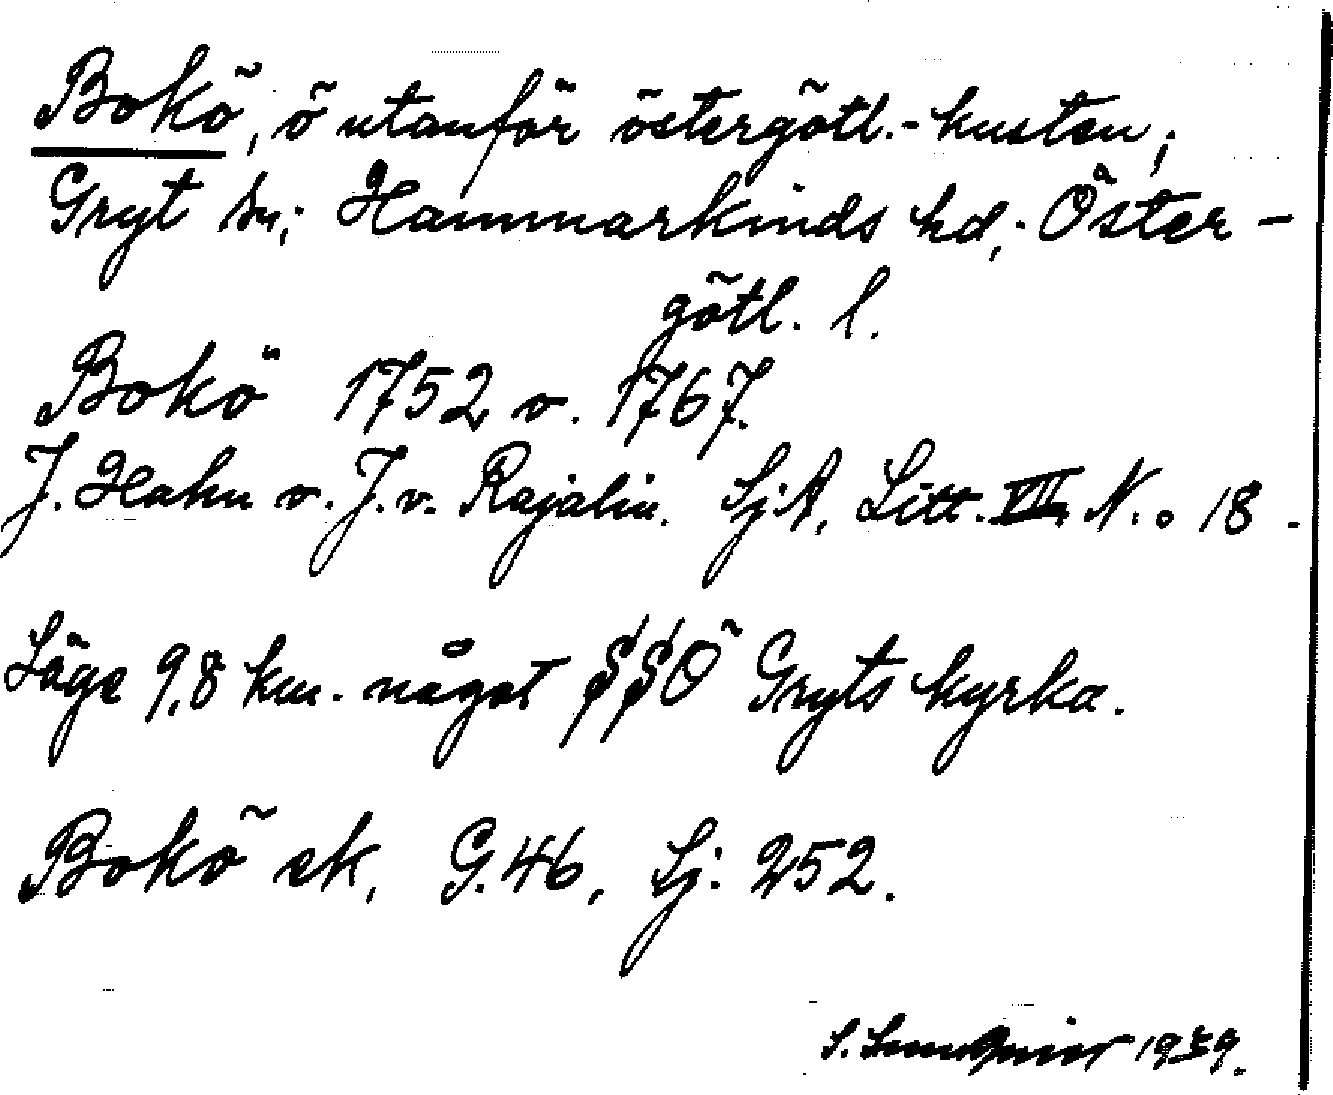 Bokö, ö utanför östergötl.-kusten,
Gryt sn; Hammarkinds hd, Öster-
götl. l.
Bokö 1752 o. 1767.
J. Hahn o. J. v. Rajalin. SjA, Litt. VII, N.o 18.
Läge 9,8 km. något SSÖ Gryts kyrka.
Bokö ek, G.46, Sj: 252.
S. 19